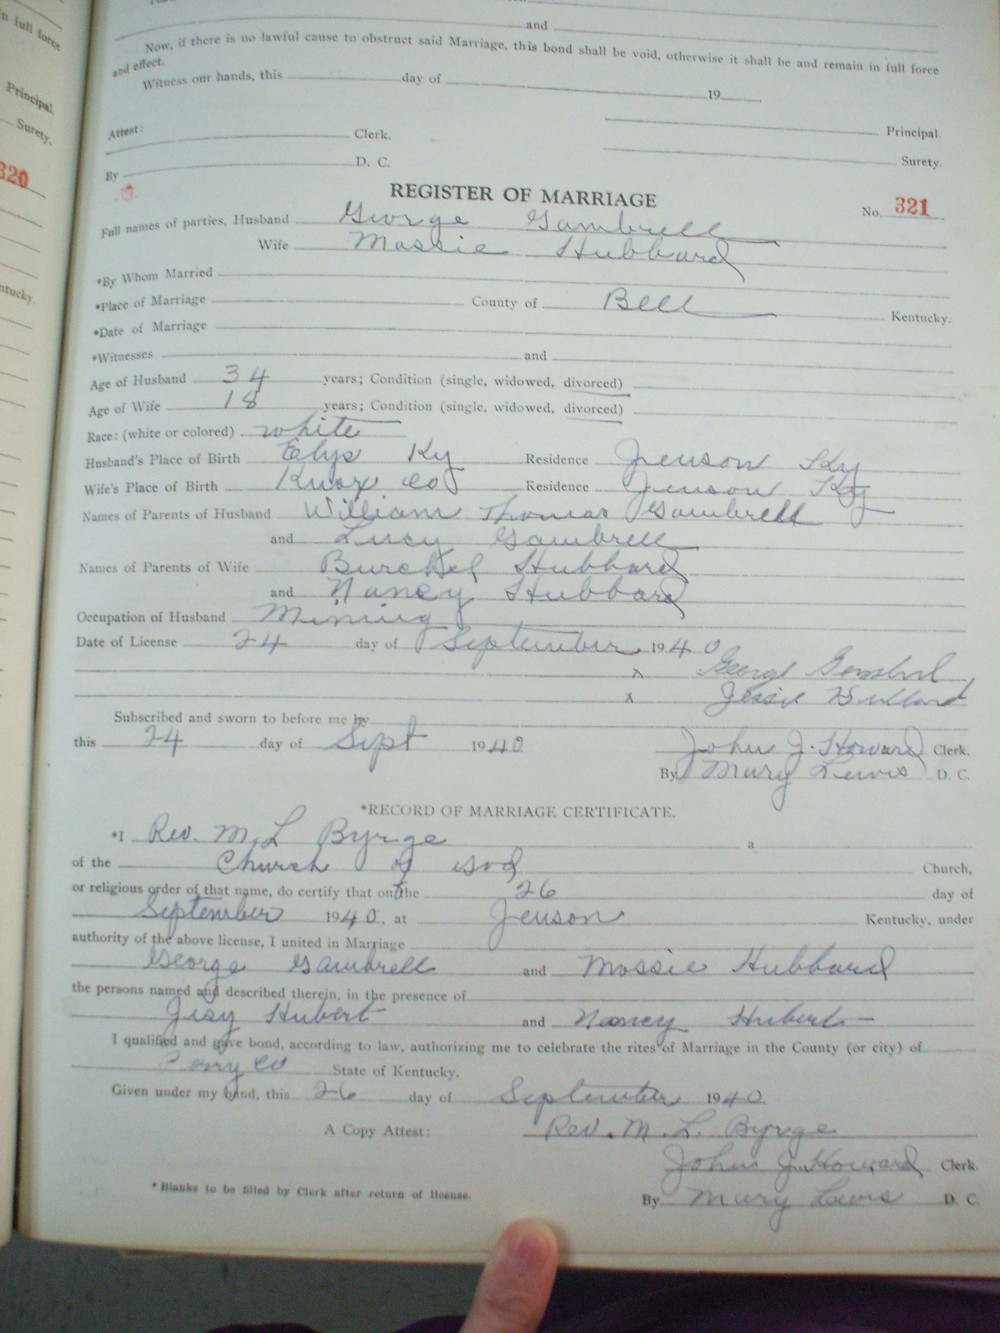 and
Now, if there is no lawful cause to obstruct said Marriage, this bond shall be void, otherwise it shall be and remain in full force
and effect.
Witness our hands, this day of 19
Attest: Clerk. Principal.
By D. C. Surety.
n full force
Principal.
Surety.
320
ntucky.
REGISTER OF MARRIAGE No. 321
Full names of parties, Husband George Gambrell
Wife Mossie Hubbard
*By Whom Married
*Place of Marriage County of Bell Kentucky.
*Date of Marriage
*Witnesses and
Age of Husband 34 years; Condition (single, widowed, divorced)
Age of Wife 18 years; Condition (single, widowed, divorced)
Race: (white or colored) white
Husband's Place of Birth Elys Ky Residence Jenson Ky
Wife's Place of Birth Knox Co Residence Jenson Ky
Names of Parents of Husband William Thomas Gambrell
and Lucy Gambrell
Names of Parents of Wife Burchel Hubbard
and Nancy Hubbard
Occupation of Husband Mining
Date of License 24 day of September 1940
x George
x Jessie
Subscribed and sworn to before me by
this 24 day of Sept 1940 John J. Howard Clerk.
By Mary Lewis D. C.
*RECORD OF MARRIAGE CERTIFICATE.
*I Rev. M. L. Byrge a
of the Church of God Church,
or religious order of that name, do certify that on the 26 day of
September 1940, at Jenson Kentucky, under
authority of the above license, I united in Marriage
George Gambrell and Mossie Hubbard
the persons named and described therein, in the presence of
Hubert and Nancy Hubert
I qualified and gave bond, according to law, authorizing me to celebrate the rites of Marriage in the County (or city) of
Co State of Kentucky.
Given under my hand, this 26 day of September 1940.
A Copy Attest: Rev. M. L. Byrge
John J. Howard Clerk.
*Blanks to be filled by Clerk after return of license. By Mary Lewis D. C.